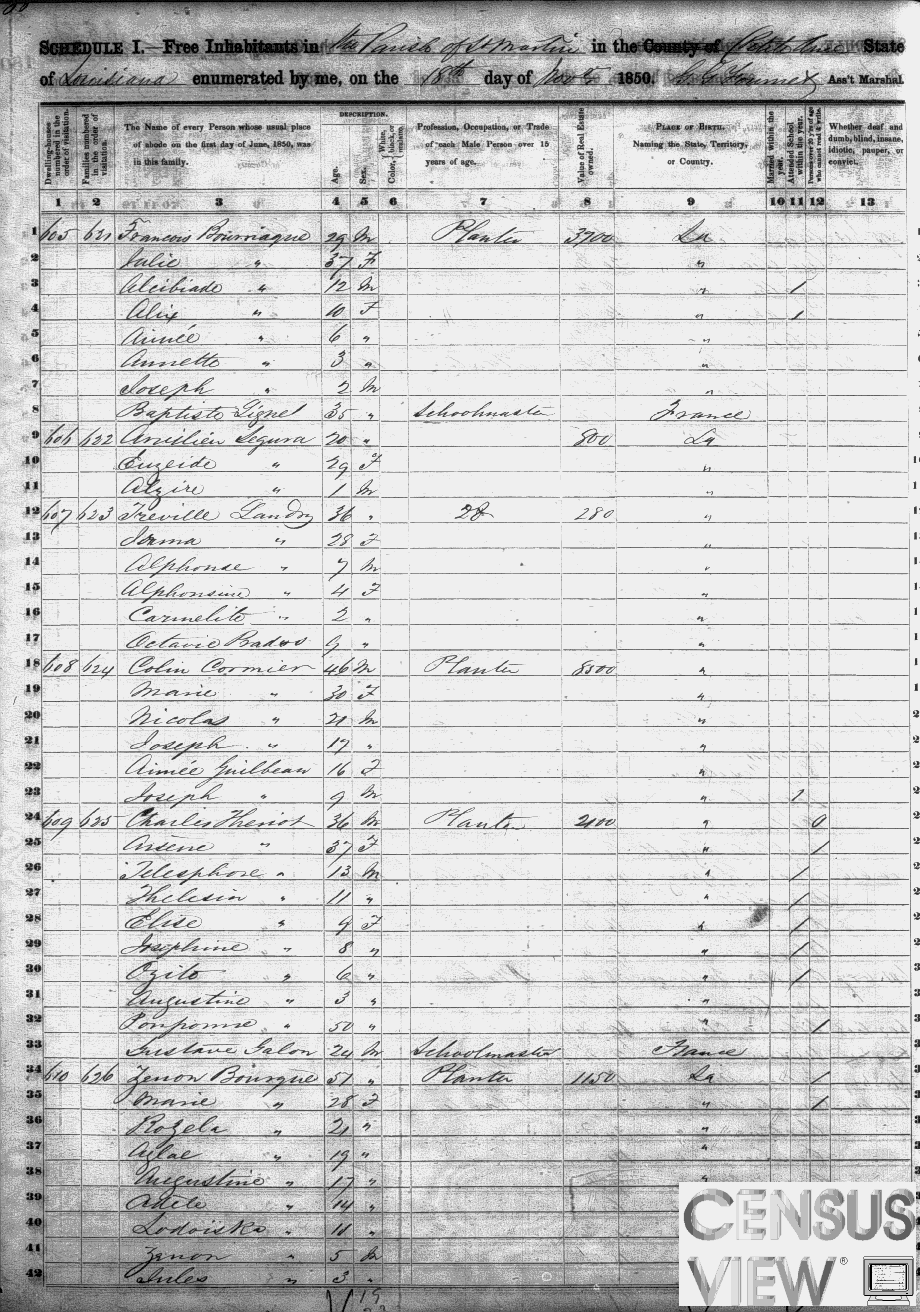 SCHEDULE I.—Free Inhabitants in the Parish of St Martin in the County of State
of Louisiana enumerated by me, on the 18th day of Novr 1850. Ass't Marshal.
Dwelling-houses numbered in the order of visitation.
Families numbered in the order of visitation.
The Name of every Person whose usual place of abode on the first day of June, 1850, was in this family.
DESCRIPTION.
Age.
Sex.
Color, { White, black, or mulatto.
Profession, Occupation, or Trade of each Male Person over 15 years of age.
Value of Real Estate owned.
PLACE OF BIRTH. Naming the State, Territory, or Country.
Married within the year.
Attended School within the year.
Persons over 20 y'rs of age who cannot read & write.
Whether deaf and dumb, blind, insane, idiotic, pauper, or convict.
1 2 3 4 5 6 7 8 9 10 11 12 13
1 605 621 Francois Bourriaque 29 M Planter 3700 La
2 Julie " 37 F "
3 Alcibiade " 12 M " 1
4 Alix " 10 F " 1
5 Aimée " 6 " "
6 Annette " 3 " "
7 Joseph " 2 M "
8 Baptiste Gignel 35 " Schoolmaster France
9 606 622 Segura 20 " 800 La
10 Euzeide " 29 F "
11 Alzire " 1 M "
12 607 623 Treville Landry 36 " 280 "
13 Irma " 28 F "
14 Alphonse " 7 M "
15 Alphonsine " 4 F "
16 Carmelite " 2 " "
17 Octavie 9 " "
18 608 624 Colin Cormier 46 M Planter 8500 "
19 Marie " 30 F "
20 Nicolas " 21 M "
21 Joseph " 17 " "
22 Aimée Guilbeau 16 F "
23 Joseph " 9 M " 1
24 609 625 Charles Theriot 36 M Planter 2100 " 0
25 Arsene " 37 F " 1
26 Telesphore " 13 M " 1
27 Thelesin " 11 " " 1
28 Elise " 9 F " 1
29 Josephine " 8 " " 1
30 Ozite " 6 " " 1
31 Augustine " 3 " "
32 Pomponne " 50 " " 1
33 Gustave Galon 24 M Schoolmaster France
34 610 626 Zenon Bourgue 51 " Planter 1150 La 1
35 Marie " 28 F " 1
36 Rozela " 21 " "
37 Aglae " 19 " "
38 Augustine " 17 " "
39 Adele " 14 "
40 Lodoiska " 11 "
41 Zenon " 5 M
42 Jules " 3 "
CENSUS
VIEW®